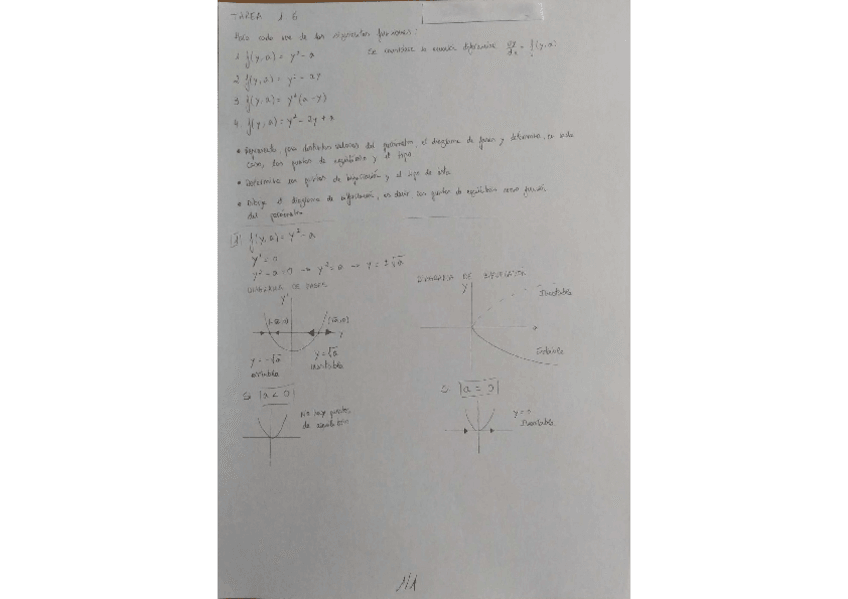 TAREA 1 6
Para cada una de las siguientes funciones:
Se considera la ecuación diferencial dy/dx = f(y,a)
1. f(y,a) = y² - a
2. f(y,a) = y² - ay
3. f(y,a) = y²(a-y)
4. f(y,a) = y² - 2y + a
• Representa, para distintos valores del parámetro, el diagrama de fases y determina, en cada
caso, los puntos de equilibrio y el tipo
• Determina los puntos de bifurcación y el tipo de
• Dibuja el diagrama de bifurcación, es decir los puntos de equilibrio como función
del parámetro
1) f(y,a) = y² - a
y' = 0
y² - a = 0 → y² = a → y = ±√a
DIAGRAMA DE FASES
DIAGRAMA DE BIFURCACIÓN
y'
y
(-√a,0)
(√a,0)
y
y = -√a
estable
y = √a
inestable
Inestable
a
Estable
Si |a < 0|
No hay puntos
de equilibrio
Si |a = 0|
y = 0
Inestable
1/1